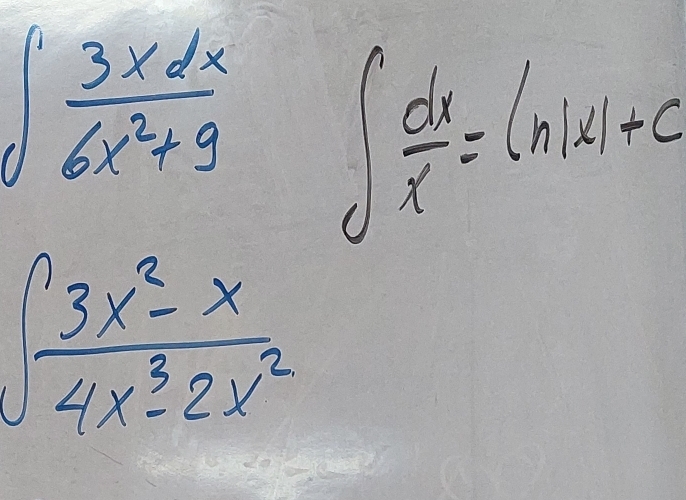 ∫ 3x dx / 6x²+9
∫ dx / x = ln|x| + C
∫ 3x² - x / 4x³ - 2x²